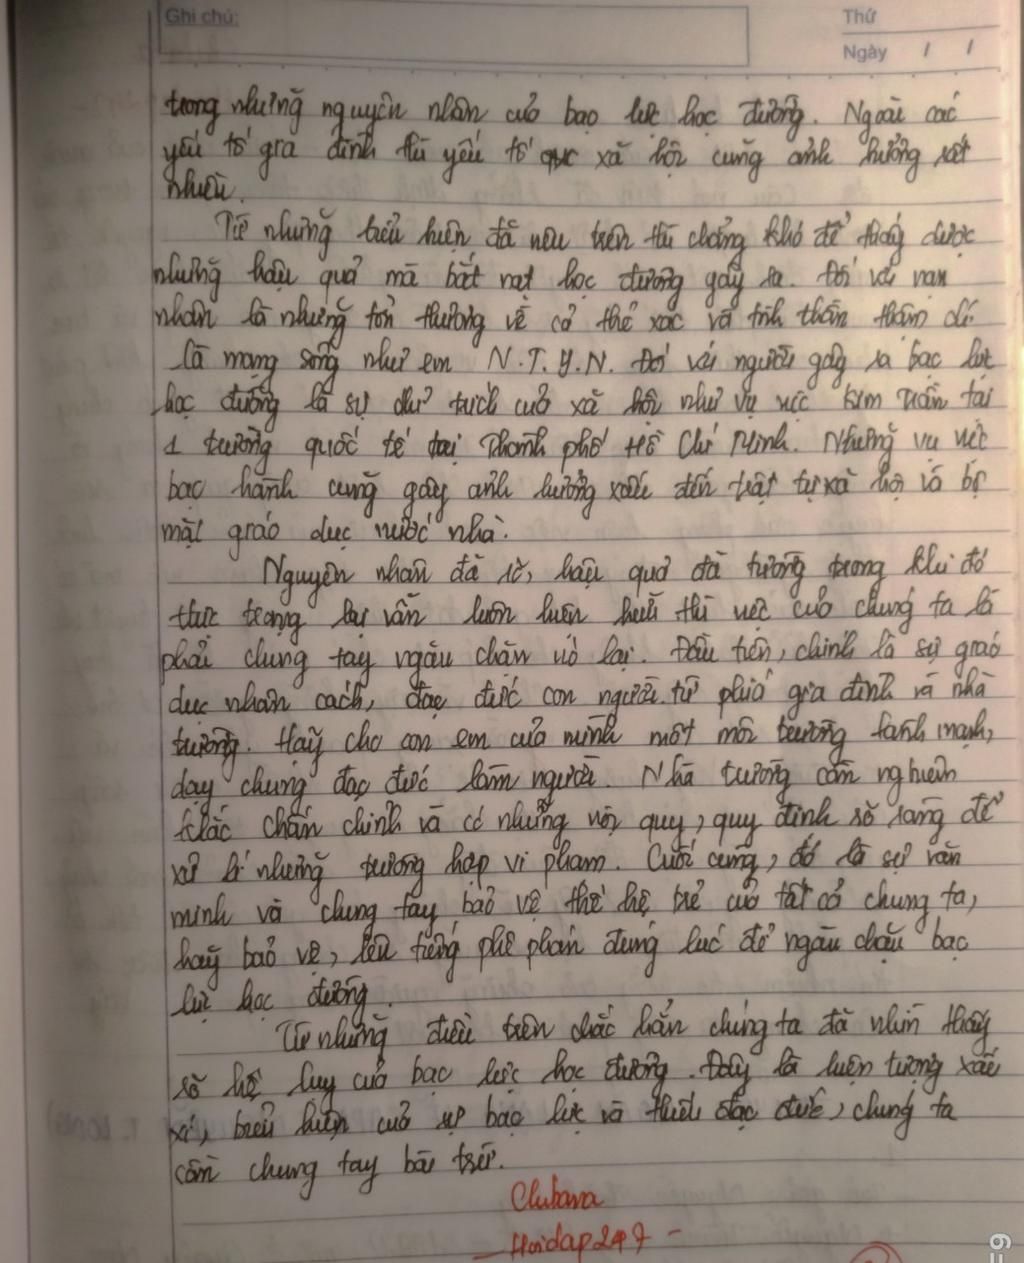 Ghi chú:
Thứ
Ngày / /
trong những nguyên nhân của bạo lực học đường. Ngoài các
yếu tố gia đình thì yếu tố xã hội cũng ảnh hưởng rất
nhiều.
Từ những biểu hiện đã nêu trên thì chẳng khó để thấy được
những hậu quả mà bắt nạt học đường gây ra. Đối với nạn
nhân là những tổn thương về cả thể xác và tinh thần thậm chí
là mạng sống như em N.T.Y.N. Đối với người gây ra bạc lực
học đường là sự chỉ trích của xã hội như vụ việc tại
1 trường quốc tế tại Thành phố Hồ Chí Minh. Những vụ việc
bạo hành cũng gây ảnh hưởng xấu đến trật tự xã hội và bộ
mặt giáo dục nước nhà.
Nguyên nhân đã rõ, hậu quả đã tường trong khi đó
thực trạng lại vẫn luôn luôn hiện thì việc của chúng ta là
phải chung tay ngăn chặn nó lại. Đầu tiên, chính là sự giáo
dục nhân cách, đạo đức con người từ phía gia đình và nhà
trường. Hãy cho con em của mình một môi trường lành mạnh,
dạy chúng đạo đức làm người. Nhà trường cần nghiêm
khắc chấn chỉnh và có những nội quy, quy định rõ ràng để
xử lí những trường hợp vi phạm. Cuối cùng, đó là sự văn
minh và chung tay bảo vệ thế hệ trẻ của tất cả chúng ta,
hãy bảo vệ, lên tiếng phê phán đúng lúc để ngăn chặn bạo
lực học đường.
Từ những điều trên chắc hẳn chúng ta đã nhìn thấy
rõ hệ lụy của bạo lực học đường. Đây là hiện tượng xấu
xí, biểu hiện của sự bạo lực và thiếu đạo đức, chúng ta
cần chung tay bài trừ.
Clubava
- Hoidap247 -